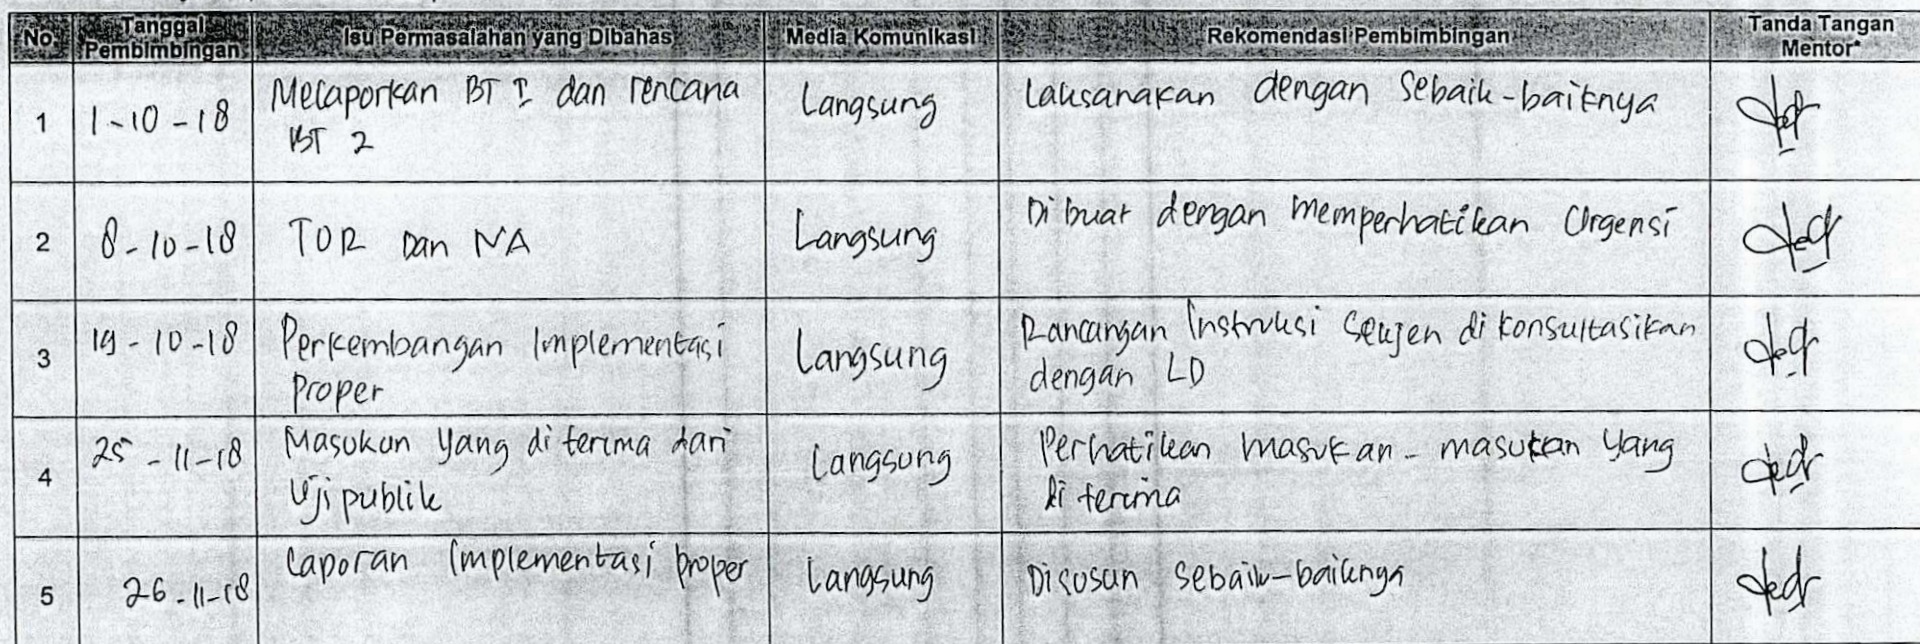 No. Tanggal Pembimbingan Isu Permasalahan yang Dibahas Media Komunikasi Rekomendasi Pembimbingan Tanda Tangan Mentor*
1 1-10-18 Melaporkan BT I dan rencana Langsung Laksanakan dengan sebaik-baiknya
BT 2
2 8-10-18 TOR Dan NA Langsung Dibuat dengan memperhatikan Urgensi
3 19-10-18 Perkembangan Implementasi Langsung Rancangan Instruksi Sekjen dikonsultasikan
Proper dengan LD
4 25-11-18 Masukan yang diterima dari Langsung Perhatikan masukan-masukan yang
Uji publik diterima
5 26-11-18 Laporan Implementasi proper Langsung Disusun sebaik-baiknya